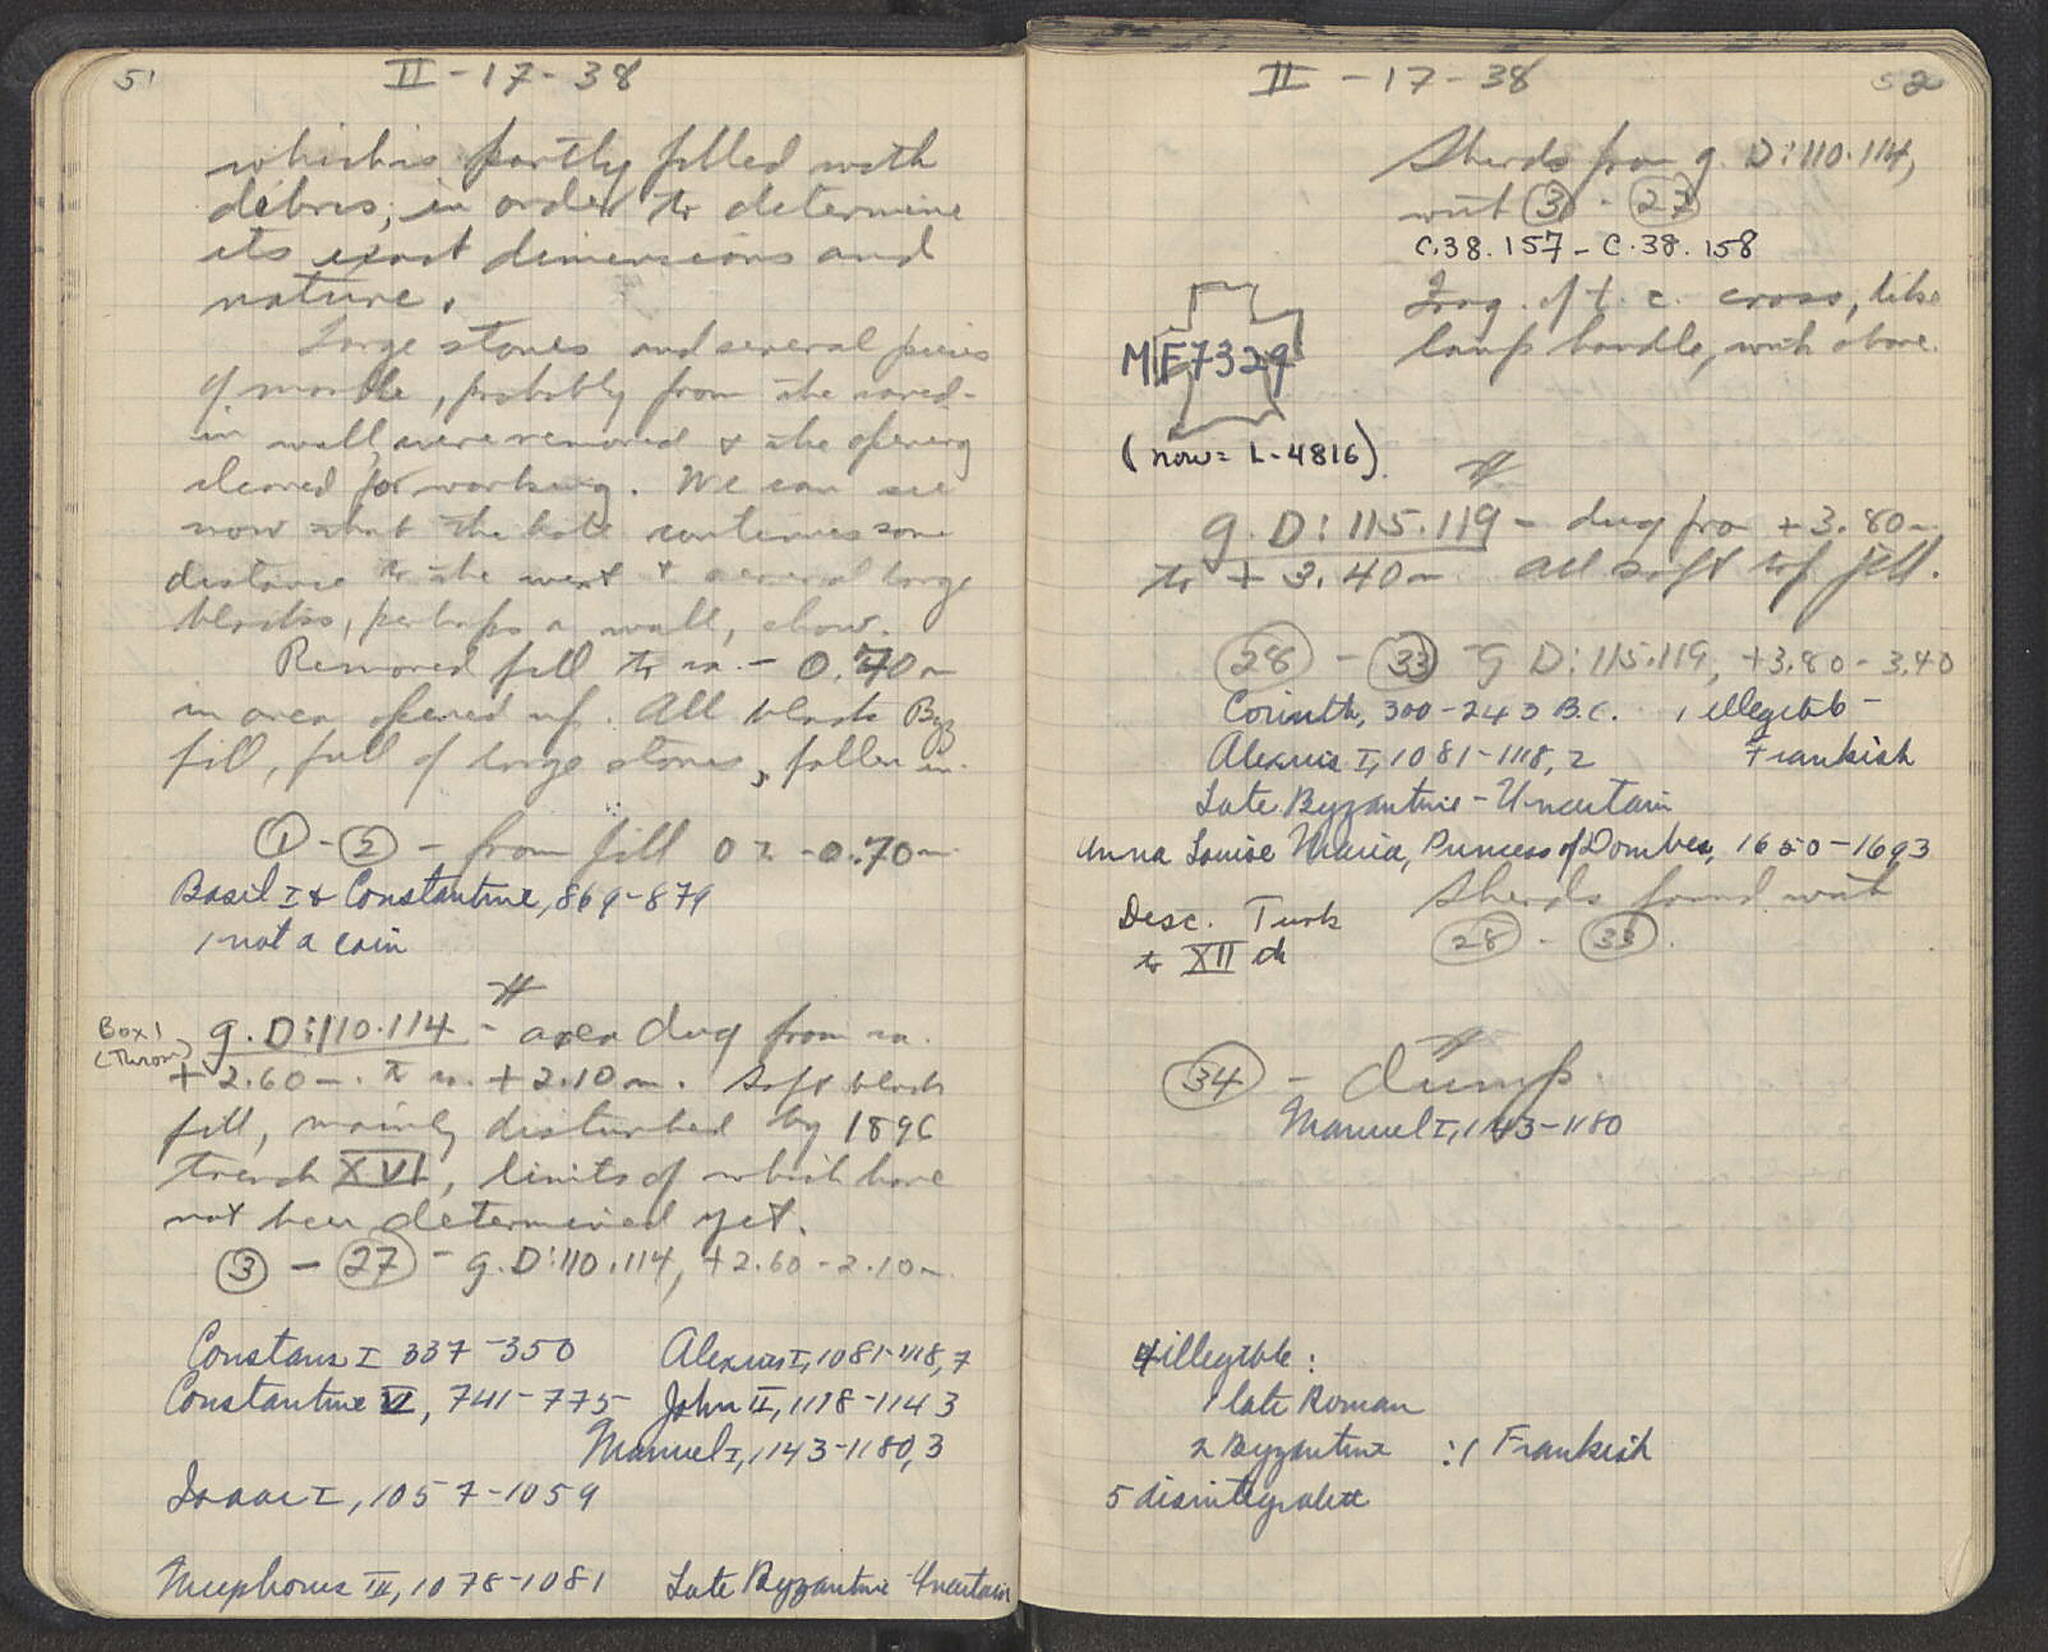 51
II - 17 - 38
which is partly filled with
debris, in order to determine
its exact dimensions and
nature.
Large stones and several pieces
of marble, probably from the caved-
in wall, were removed & the opening
cleared for working. We can see
now that the hole continues some
distance to the west & several large
blocks, perhaps a wall, show.
Removed fill to ca. - 0.70 m
in area opened up. All black Byz
fill, full of large stones, fallen in.
1 - 2 - from fill 0 to -0.70 m
Basil I & Constantine, 869-879
1 not a coin
Box 1
g. D:110.114 - area dug from ca.
+ 2.60 m. to ca. + 2.10 m. Soft black
fill, mainly disturbed by 1896
trench XVI, limits of which have
not been determined yet.
3 - 27 - g. D:110.114, +2.60 - 2.10 m
Constans I 337-350 Alexius I, 1081-1118, 7
Constantine VI, 741-775 John II, 1118-1143
Manuel I, 1143-1180, 3
Isaac I, 1057-1059
Nicephorus III, 1078-1081 Late Byzantine Uncertain
II - 17 - 38
52
Sherds from g. D:110.114,
with 3 - 27
C.38.157 - C.38.158
Frag. of t.c. cross, like
lamp handle, with above.
MF7329
(now = L-4816)
g. D:115.119 - dug from +3.80 m
to + 3.40 m All soft top fill.
28 - 33 - g D:115.119, +3.80-3.40
Corinth, 300-243 B.C. 1 illegible -
Alexius I, 1081-1118, 2 Frankish
Late Byzantine - Uncertain
Anna Louise Maria, Princess of Dombes, 1650-1693
Sherds found with
28 - 33.
Desc. Turk
to XII
34 - dump.
Manuel I, 1143-1180
4 illegible:
1 late Roman
2 Byzantine : 1 Frankish
5 disintegrated